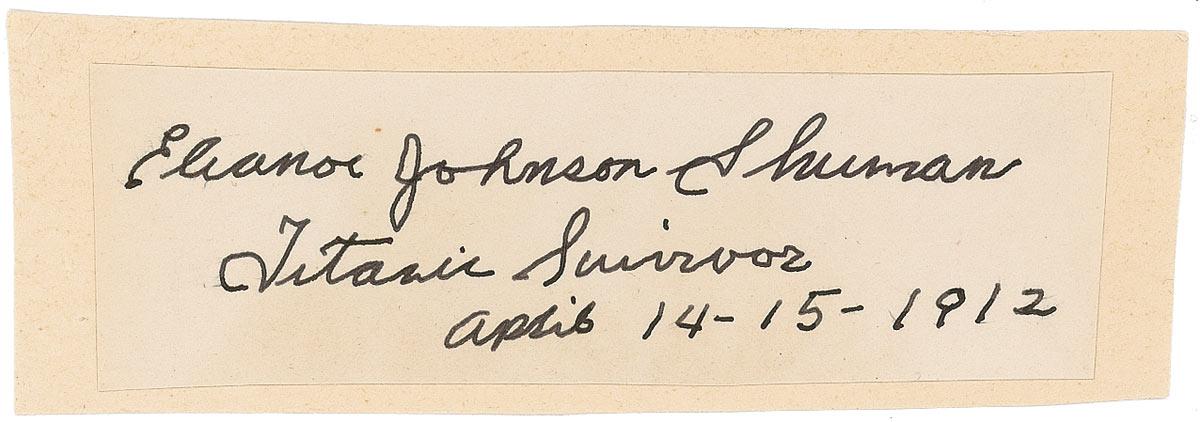 Eleanor Johnson Shuman
Titanic Survivor
April 14-15-1912